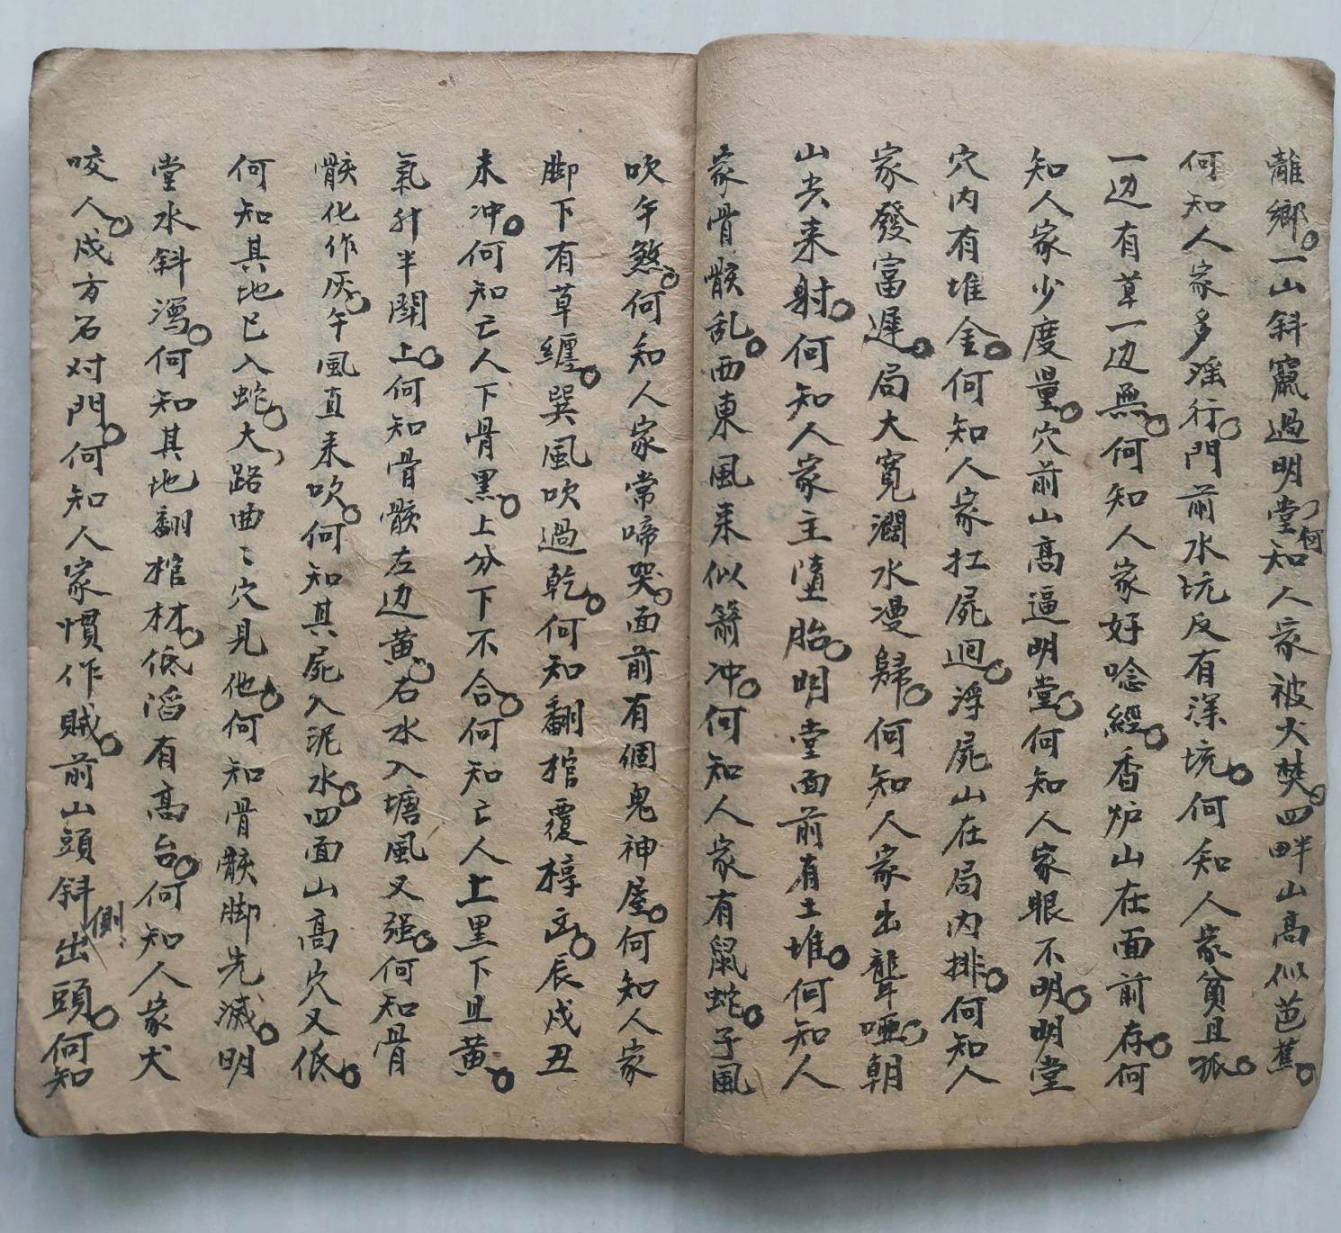 離鄉。一山斜竄過明堂、何知人家被火焚。四畔山高似芭蕉。
何知人家多淫行。門前水坑反有深坑。何知人家貧且孤。
一边有草一边無。何知人家好唸經。香炉山在面前存。何
知人家少度量。穴前山高逼明堂。何知人家眼不明。明堂
穴内有堆金。何知人家扛屍迴。浮屍山在局内排。何知人
家發富遲。局大寬濶水漫歸。何知人家出聾啞。朝
山尖来射。何知人家主墮胎。明堂面前有土堆。何知人
家骨骸乱。西東風来似箭冲。何知人家有鼠蛇。子風
吹午煞。何知人家常啼哭。面前有個鬼神屋。何知人家
脚下有草纏。巽風吹過乾。何知翻棺覆椁。辰戌丑
未冲。何知亡人下骨黑。上分下不合。何知亡人上黑下且黄。
氣升半開上。何知骨骸左边黄。右水入塘風又强。何知骨
骸化作灰。午風直来吹。何知其屍入泥水。四面山高穴又低。
何知其地已入蛇。大路曲〻穴見他。何知骨骸脚先滅。明
堂水斜瀉。何知其地翻棺材。低滔有高台。何知人家犬
咬人。戌方石对門。何知人家慣作賊。前山頭斜側出頭。何知